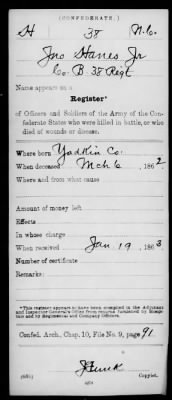 (CONFEDERATE.)
H 38 N.C.
Jno Hanes Jr
Co. B. 38 Regt
Name appears on a
Register*
of Officers and Soldiers of the Army of the Confederate States who were killed in battle, or who died of wounds or disease.
Where born Yadkin Co.
When deceased Mch 6, 1862
Where and from what cause
Amount of money left
Effects
In whose charge
When received Jan 19, 1863
Number of certificate
Remarks:
*This register appears to have been compiled in the Adjutant and Inspector General's Office from returns furnished by Hospitals and by Regimental and Company Officers.
Confed. Arch., Chap. 10, File No. 9, page 91
Copyist.